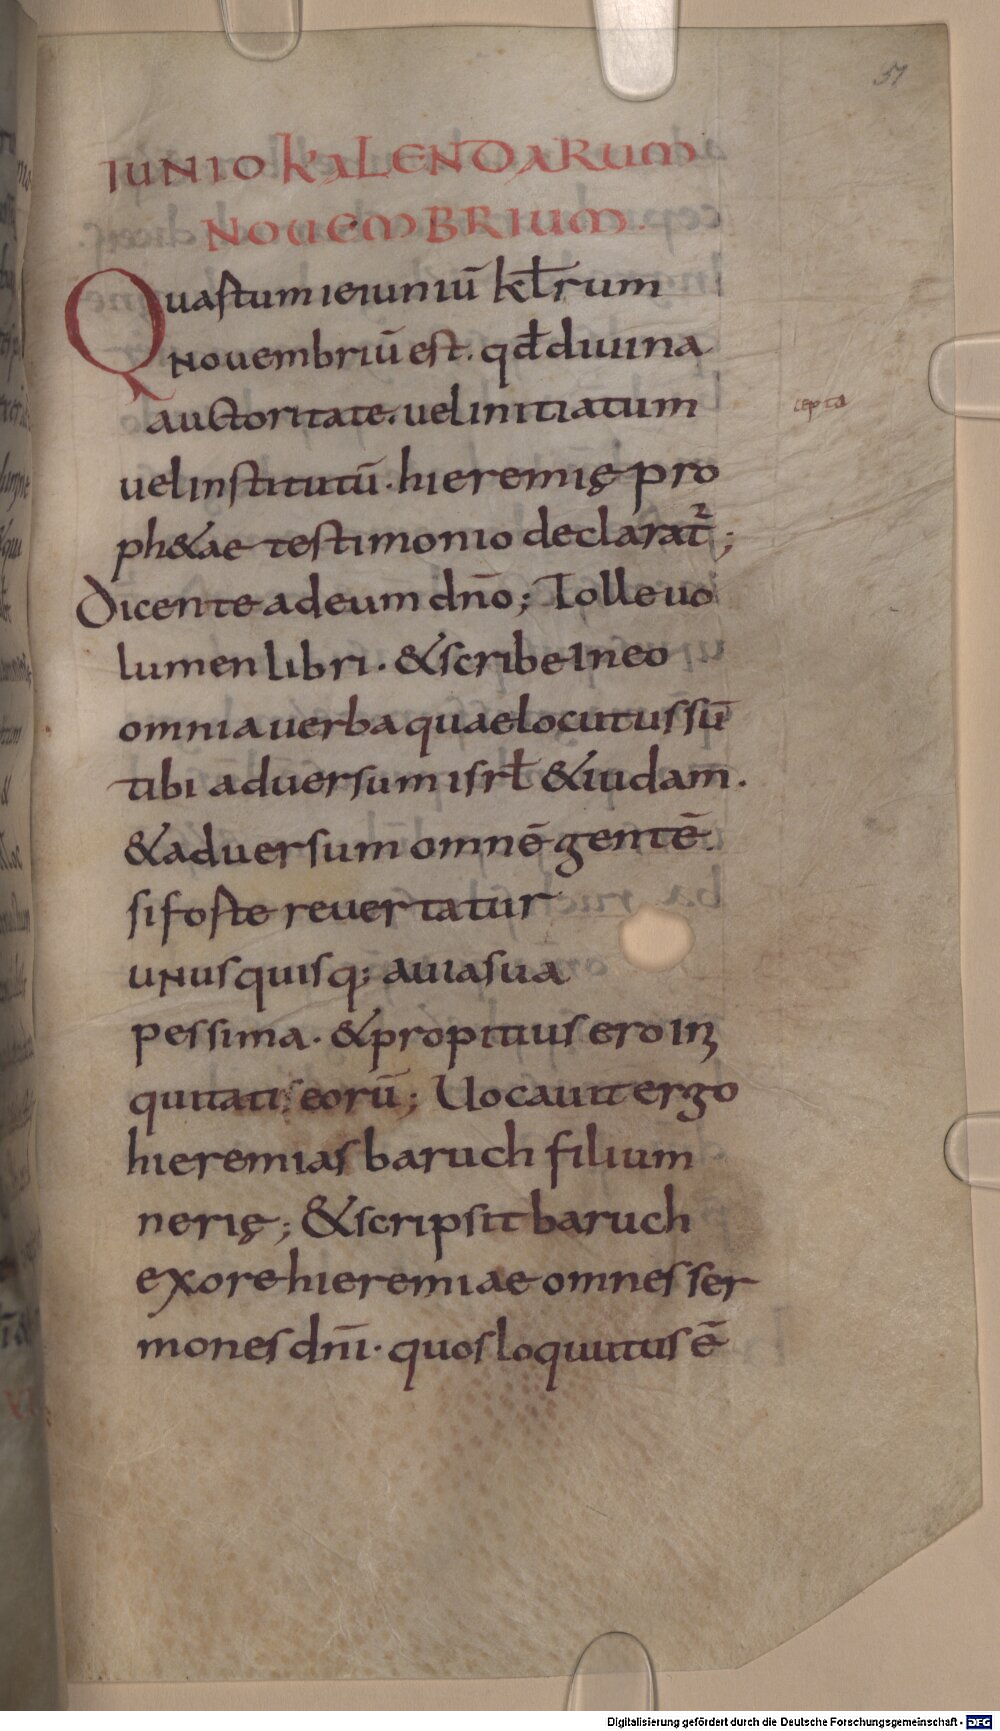 51
IUNIO KALENDARUM
NOUEMBRIUM.
Quastum ieiuniū kłrum
Nouembriū est. qđ diuina
auctoritate. uel initiatum
cepta
uel institutū. hieremię pro
ph&ae testimonio declarat᷑;
Dicente ad eum dnō; Tolle uo
lumen libri. & scribe In eo
omnia uerba quae locutus sū
tibi aduersum isrł & iudam.
& aduersum omnē gentē.
si foste reuertatur
uNusquisq; a uia sua
pessima. & propitius ero Iniq
quitatis eorū; Uocauit ergo
hieremias baruch filium
nerię; & scripsit baruch
ex ore hieremiae omnes ser
mones dnī. quos loquutus ē
Digitalisierung gefördert durch die Deutsche Forschungsgemeinschaft - DFG